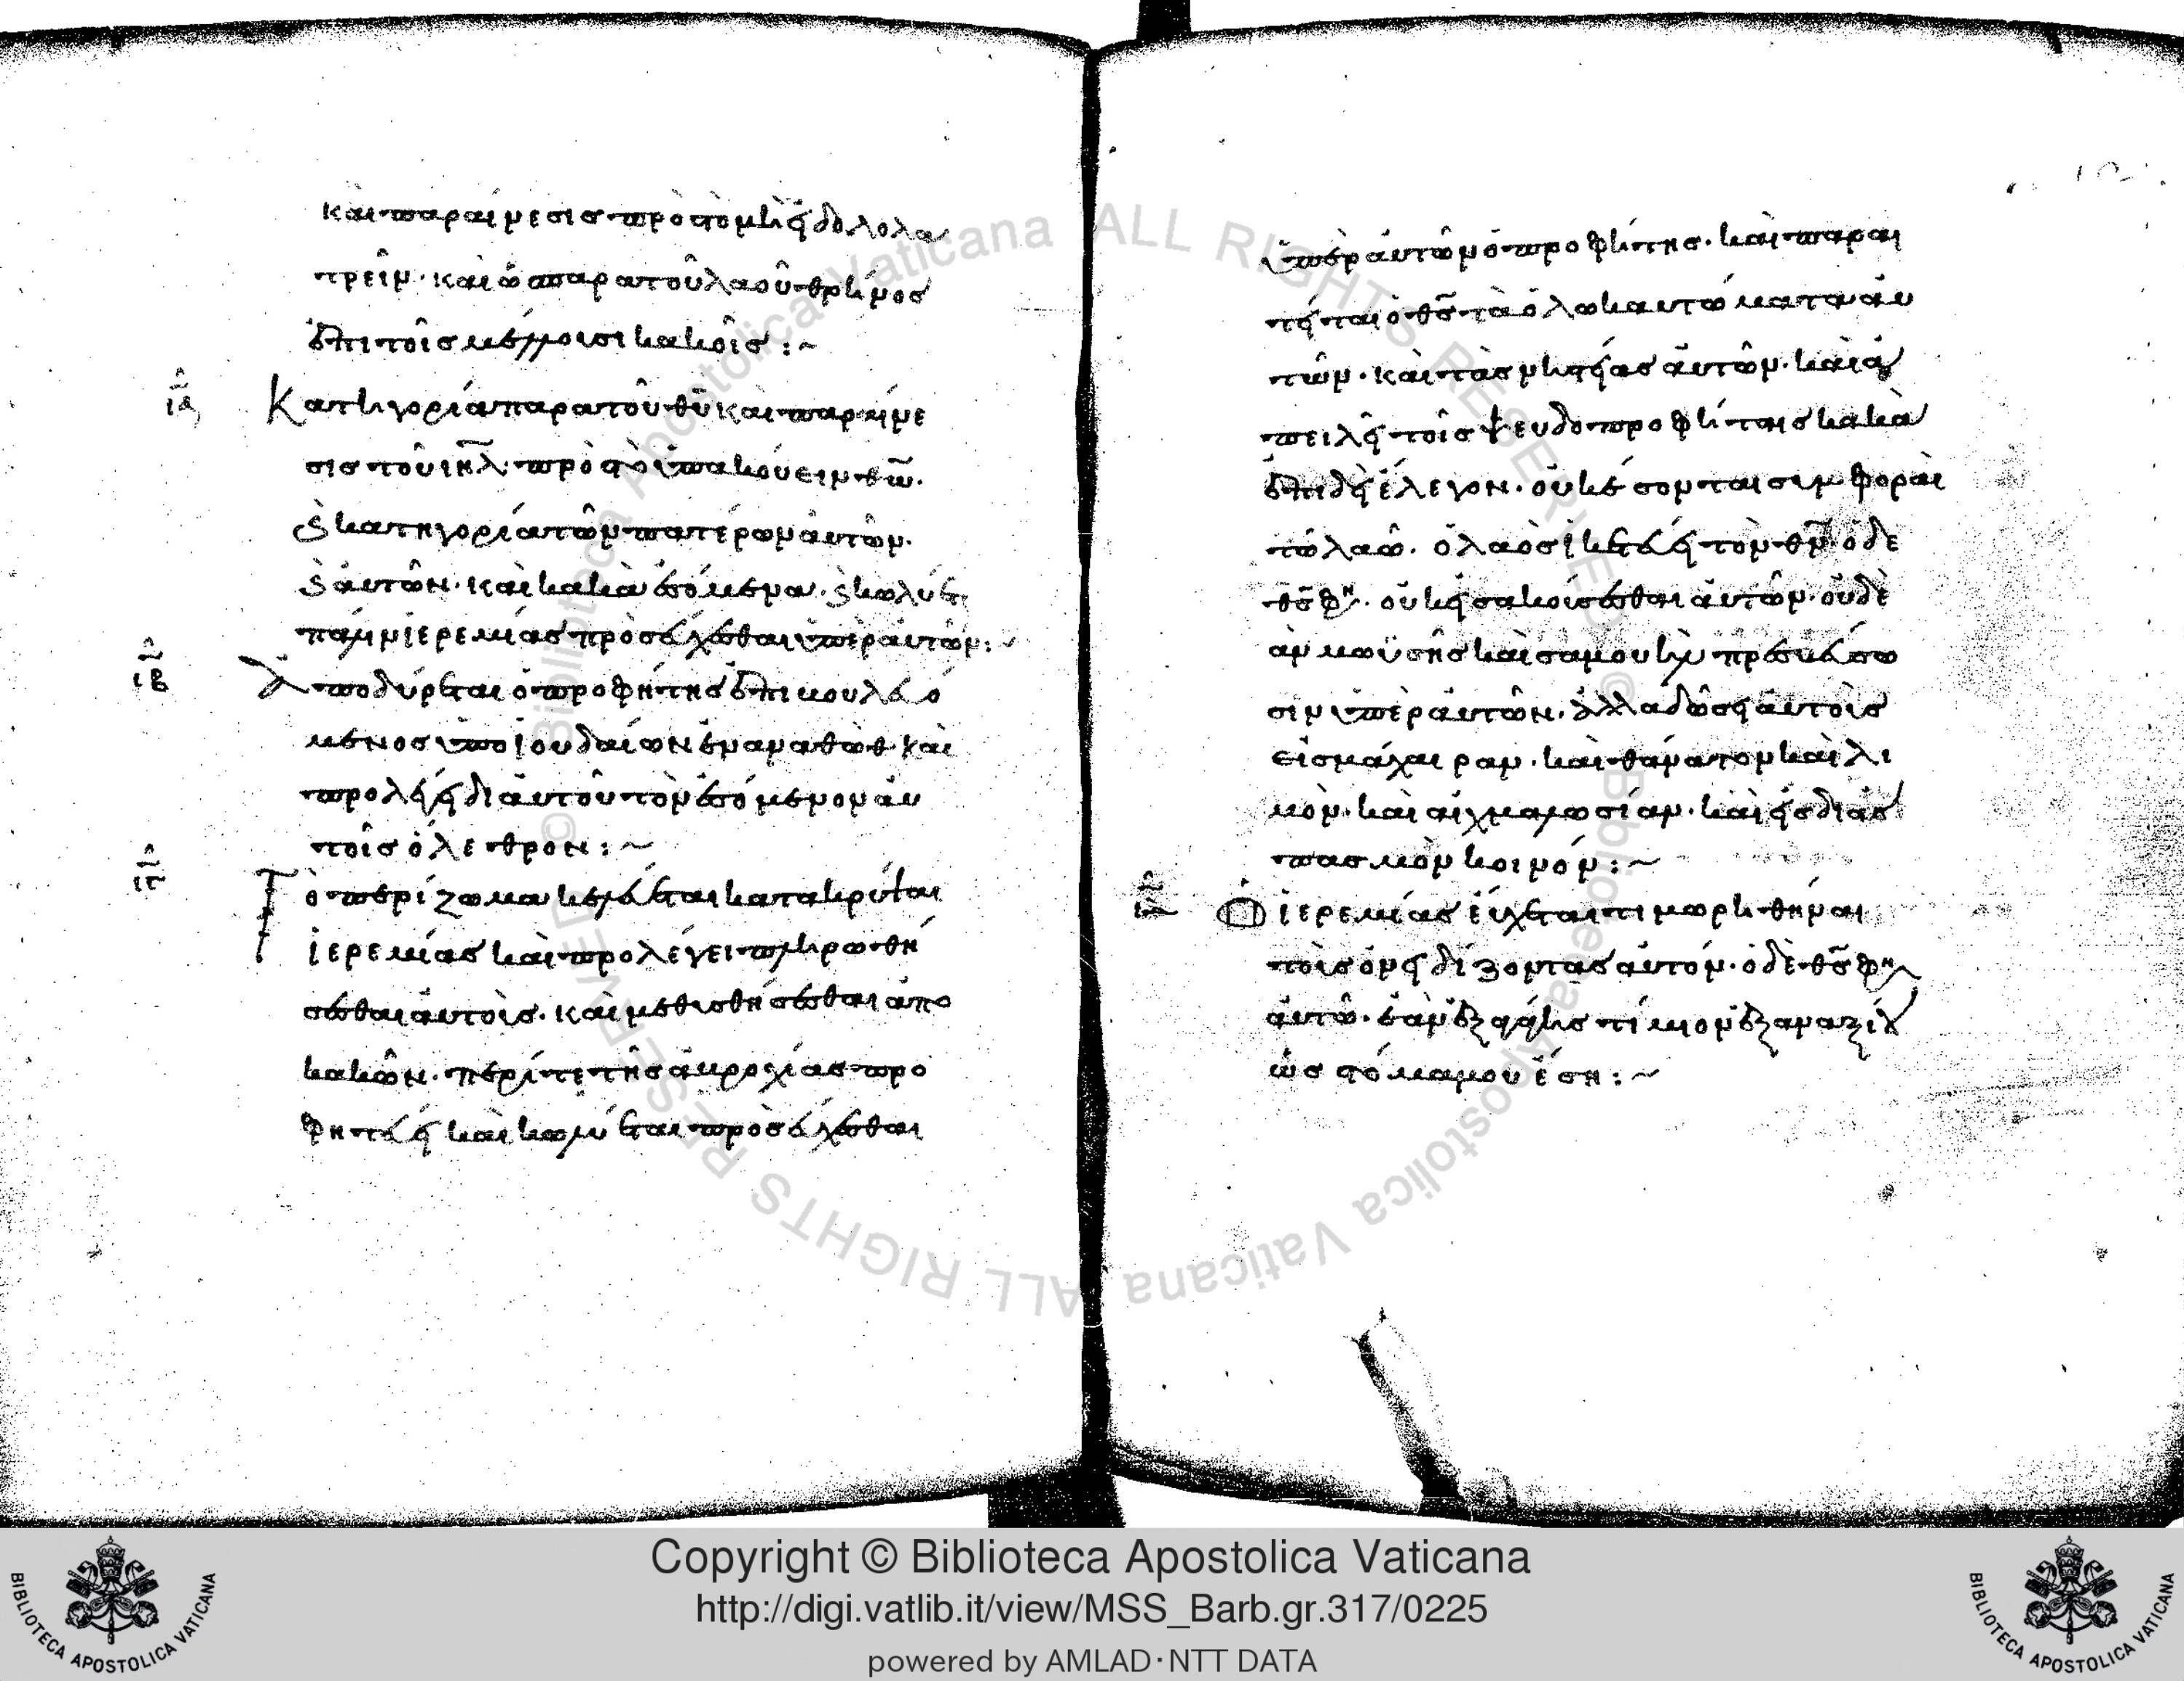 καὶ παραίνεσις πρὸς τὸ μὴ εἰδωλολα
τρεῖν· καὶ ὁ παρὰ τοῦ λαοῦ θρῆνος
ἐπὶ τοῖς μέλλουσι κακοῖς :~
ια
Κατηγορία παρὰ τοῦ θῦ καὶ παραίνε
σις τοῦ ιηλ πρὸς τὸ ὑπακούειν θῶ.
καὶ κατηγορία τῶν πατέρων αὐτῶν.
καὶ αὐτῶν· καὶ κακὰ ἐσόμενα. καὶ κωλύε
ται μὴ ἱερεμίας προσεύχεσθαι ὑπὲρ αὐτῶν :~
ιβ
Ἀποδύρεται ὁ προφήτης ἐπιβουλευό
μενος ὑπὸ ἰουδαίων ἐν ἀναθώθ· καὶ
προλέγει δι' αὐτοῦ τὸν ἐσόμενον αὐ
τοῖς ὄλεθρον :~
ιγ
Τὸ περίζωμα κελεύεται κατακρύψαι
ἱερεμίας καὶ προλέγει πληρωθή
σεσθαι αὐτοὺς· καὶ μεθυσθήσεσθαι ἀπὸ
κακῶν. περί τε τῆς ἀβροχίας προ
φητεύει καὶ κωλύεται προσεύχεσθαι
ὑπὲρ αὐτῶν ὁ προφήτης. καὶ παραι
τεῖται ὁ θς τὰ ὁλοκαυτώματα αὐ
τῶν. καὶ τὰς νηστείας αὐτῶν. καὶ ἀ
πειλεῖ τοῖς ψευδοπροφήταις κακὰ
ἐπειδὴ ἔλεγον. οὐκ ἔσονται συμφοραὶ
τῶ λαῶ. ὁ λαὸς ἱκετεύει τὸν θν· ὁ δὲ
θς φη. οὐκ εἰσακούσεσθαι αὐτῶν· οὐδὲ
ἂν μωϋσῆς καὶ σαμουὴλ πρεσβεύσω
σιν ὑπὲρ αὐτῶν. ἀλλὰ δώσει αὐτοὺς
εἰς μάχαιραν. καὶ θάνατον καὶ λι
μὸν· καὶ αἰχμαλωσίαν. καὶ εἰς διασ
πασμὸν κοινόν :~
ιδ
Ὁ ἱερεμίας εὔχεται τιμωρηθῆναι
τοὺς ὀνειδίζοντας αὐτόν· ὁ δὲ θς φη
αὐτῶ. ἐὰν ἐξαγάγης τίμιον ἐξ ἀναξίου
ὡς στόμα μου ἔση :~
Copyright © Biblioteca Apostolica Vaticana
http://digi.vatlib.it/view/MSS_Barb.gr.317/0225
powered by AMLAD·NTT DATA